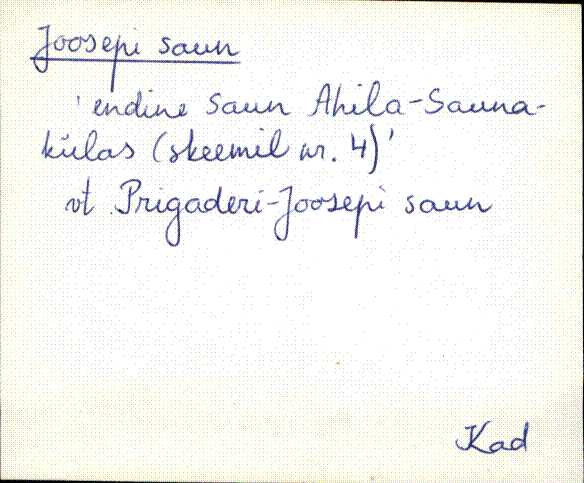 Joosepi saun
'endine saun Ahila-Sauna-
külas (skeemil nr. 4)'
vt Prigaderi-Joosepi saun
Kad